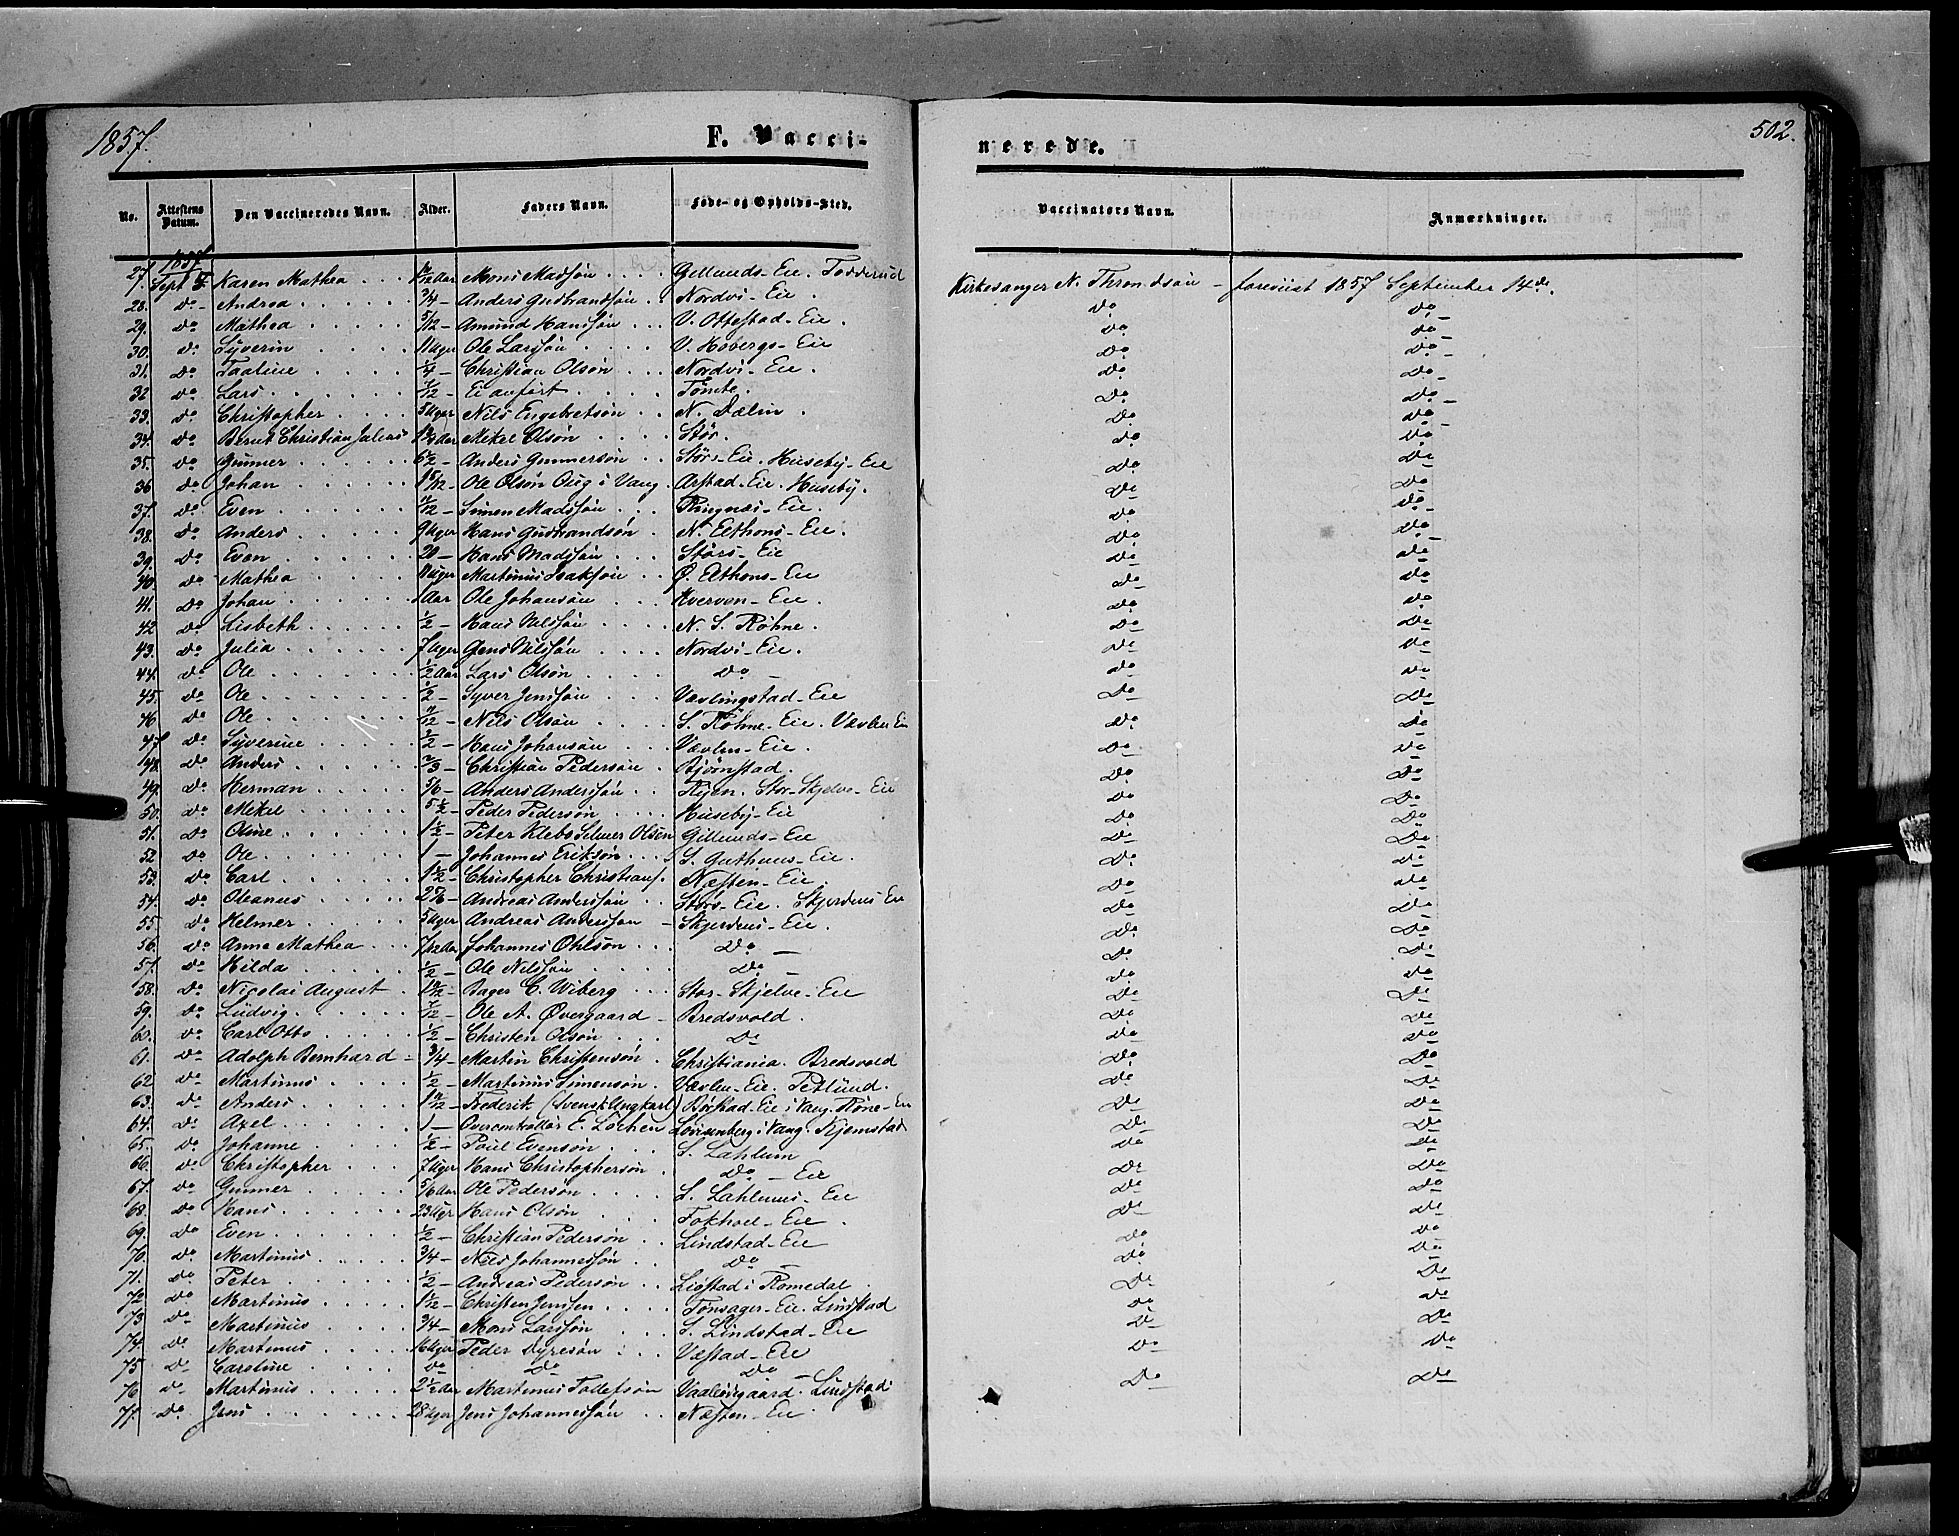 1857.
F. Vacci-
nerede.
502.
No. Attestens Datum. Den Vaccineredes Navn. Alder. Faders Navn. Føde- og Opholds-Sted. Vaccinators Navn. Anmærkninger.
1857
27. Sept Karen Mathea Aar Mons Madssøn Gillunds-Eie. Fodderud Kirkesanger N. Throndsøn - foreviist 1857 September 14de.
28. do Andrea 3/4 - Anders Gudbrandsøn Nordvi-Eie. do do
29. do Mathea 5/12 - Amund Hanssøn V. Ottestad-Eie. do do
30. do Syverin 11 Uger Ole Larssøn V. Hovergs-Eie do do
31. do Taaline 1/4 - Christian Olsøn Nordvi-Eie. do do
32 do Lars 7/12 - Ei anført Tomte. do do
33. do Christopher 5 Uger Nils Engebretsøn N. Dælin. do do
34. do Bernt Christian Julius Aar Mikel Olsøn Stør. do do
35. do Gunner 6 1/2 - Anders Gunnersøn Størs-Eie. Huseby-Eie do do
36 do Johan Ole Olsøn Oug i Vang. Arstad-Eie. Huseby. do do
37. do Even 7/12 - Simen Madssøn Tangnæs-Eie. do do
38. do Anders 9 Uger Hans Gudbrandsøn N. Eethons-Eie. do do
39. do Even 20 - Hans Madssøn Størs-Eie do do
40. do Mathea 11 Uger Martinus Isaksøn Ø. Eethons-Eie do do
41. do Johan 1 Aar Ole Johansøn Kverven-Eie. do do
42 do Lisbeth 1/2 - Hans Nilssøn N. S. Røhne. do do
43. do Julia 7 Uger Jens Nilssøn Nordvi-Eie. do do
44. do Ole 1/2 Aar Lars Olsøn do - do do
45. do Ole 1/2 - Syver Jenssøn Vævlingstad-Eie do do
46 do Ole 7/12 - Nils Olsøn S. Røhne-Eie. Vævlen Eie do do
47 do Syverine 1/2 - Hans Johansøn Vævlen-Eie. do do
48. do Anders 2/3 - Christian Pedersøn Bjørnstad. do do
49. do Herman 5/6 - Anders Anderssøn Stor-Skjelve-Eie do do
50. do Mikel 5 1/2 - Peder Pedersøn Huseby-Eie do do
51. do Oline 1 1/2 - Peter Klebo Selmer Olsen Gillunds-Eie do do
52 do Ole 1 - Johannes Eriksøn S. Guthuus-Eie. do do
53. do Carl 1 1/2 - Christopher Christians. Næsten-Eie. do do
54. do Oleanus Andreas Anderssøn Størs-Eie. Skjerdens Eie do do
55. do Helmer 5 Uger Andreas Anderssøn - Skjerdens-Eie. do do
56. do Anne Mathea 7/12 Aar Johannes Ohlsøn do - do do
57. do Hilda 1/2 - Ole Nilssøn do - do do
58. do Nicolai August Bager C. Wiberg Stor-Skjelve-Eie do do
59. do Ludvig 7/12 - Ole A. Øvergaard - Bredsvold. do do
60. do Carl Otto 1/2 - Christen Olsøn do do do
61. do Adolph Bernhard 3/4 - Martin Christensøn. Christiania. Bredsvold do do
62 do Martinus 1/2 - Martinus Simensøn. Vævlen-Eie. Petlund. do do
63. do Anders Frederik (Svensk Ungkarl) Børstad-Eie i Vang. Røne-Eie do do
64. do Axel 1 - Overcontrollør E. Løchen Louisenberg i Vang. Kjemstad do do
65. do Johanne 1/2 - Poul Evensøn S. Lahlum do do
66. do Christopher 7 Uger Hans Christophersøn do - Eie do do
67. do Gunner 5/6 Aar Ole Pedersøn S. Lahlums-Eie do do
68. do Hans 23 Uger Hans Olsøn Fokhoel-Eie. do do
69. do Even 1/2 - Christian Pedersøn Lindstad-Eie do do
70. do Martinus 3/4 - Nils Johannessøn do - do do
71. do Peter 1/2 - Andreas Pedersøn Liestad i Romedal do do
72 do Martinus Christen Jenssen Tønsager-Eie. Lindstad do do
73 do Martinus 3/4 - Mons Larssøn S. Lindstad-Eie do do
74. do Martinus 16 Uger Peder Dyresøn Vestad-Eie do do
75 do Caroline do do do -
76 do Martinus 2 1/2 Aar Martinus Tollefsøn Vaalesgaard. Lindstad do do
77. do Jens 28 Uger Jens Johannessøn Næsten-Eie